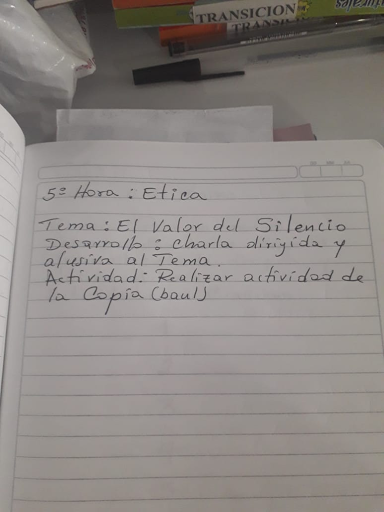 TRANSICION
TRANSI
5ª Hora : Etica
Tema : El Valor del Silencio
Desarrollo : charla dirigida y
alusiva al Tema.
Actividad : Realizar actividad de
la Copia (baul)